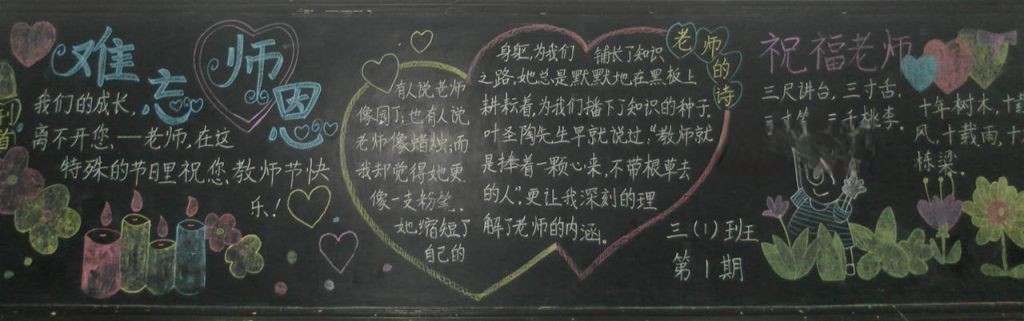 难忘师恩
我们的成长,
离不开您——老师,在这
特殊的节日里祝您教师节快
乐!
有人说老师
像园丁;也有人说,
老师像蜡烛;而
我却觉得她更
像一支粉笔.
她缩短了
自己的
老师的诗
身躯,为我们铺长了知识
之路;她总是默默地在黑板上
耕耘着,为我们播下了知识的种子.
叶圣陶先生早就说过,“教师就
是捧着一颗心来,不带根草去
的人”更让我深刻的理
解了老师的内涵。
三(1)班
第1期
祝福老师
三尺讲台,三寸舌,
三千桃李.
十年树木,十载
风,十载雨,十
栋梁.
到
首